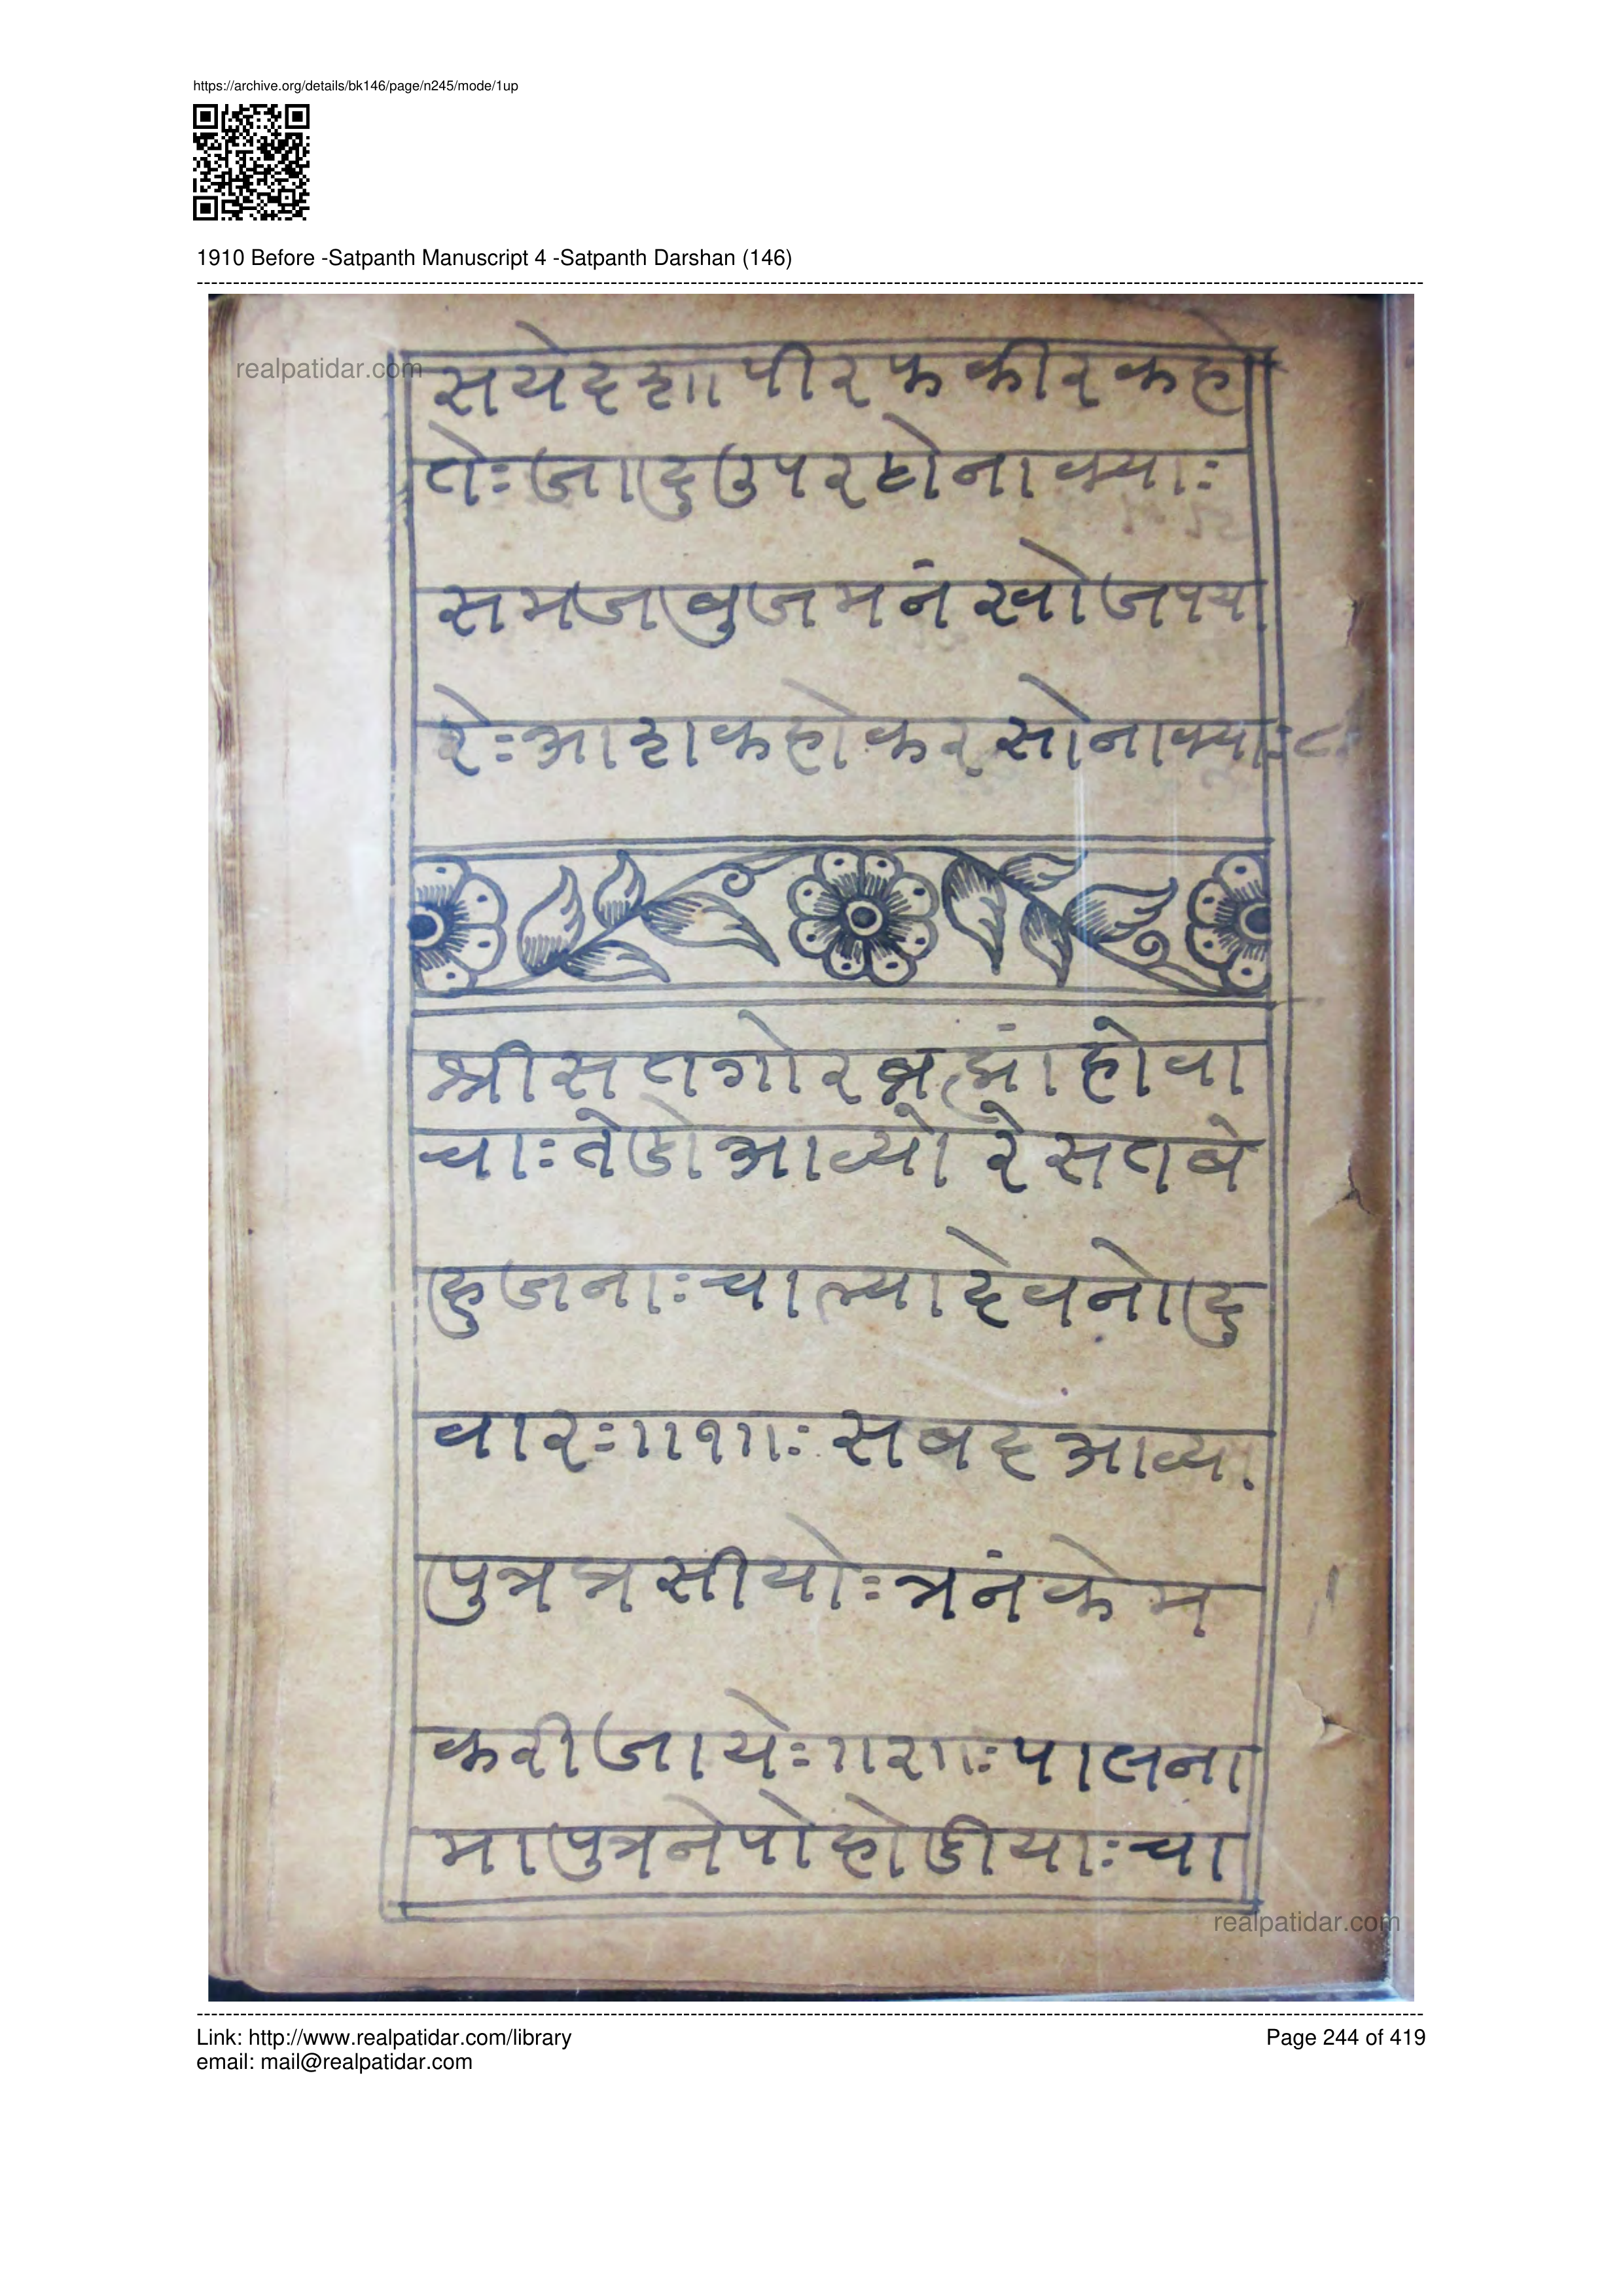 https://archive.org/details/bk146/page/n245/mode/1up
1910 Before -Satpanth Manuscript 4 -Satpanth Darshan (146)
realpatidar.com
सयेदशा पीर फकीर कहे
तेः जादु उपर होना क्याः
समज बुज मनं खोज पय
रेः आशक होकर सोना क्याः ८
श्री सतगोर ब्रह्मां होवा
चाः तेडो आव्यो रे सतबे
हु जनाः चाल्या देवनो दु
वारः ॥१॥ः सबद आव्या
पुत्र त्रसीयोः त्रनं केम
करी जायेः ॥२॥ः पालना
मा पुत्र ने पोहोडीयाः चा
realpatidar.com
Link: http://www.realpatidar.com/library
Page 244 of 419
email: mail@realpatidar.com